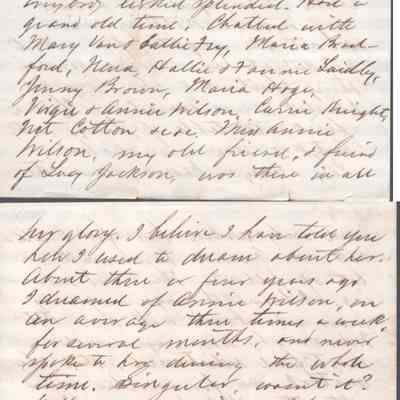 anybody looked splendid. Had a
grand old time. Chatted with
Mary Van & Sallie Fry, Maria Brad-
ford, Nena, Hallie & Fannie Laidley,
Jenny Brown, Maria Hoge,
Virgie & Annie Wilson, Carrie Knight,
Net Cotton &c &c. Miss Annie
Wilson, my old friend, & friend
of Lucy Jackson, was there in all
her glory. I believe I have told you
how I used to dream about her.
About three or four years ago
I dreamed of Annie Wilson, on
an average three times a week
for several months, and never
spoke to her during the whole
time. Singular, wasn't it?